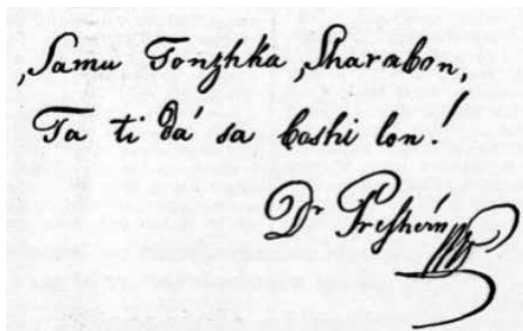 Samu Tonzhka Sharabon,
Ta ti dá sa boshi lon!
Dr Preshérin